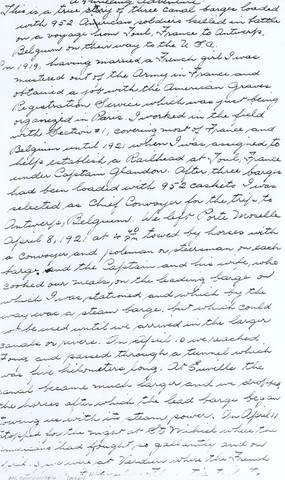 A Gruelling Adventure
This is a true story of three canal barges loaded
with 952 American soldiers killed in battle
on a voyage from Toul, France to Antwerp,
Belgium on their way to the U.S.A.
In 1919, having married a French girl I was
mustered out of the Army in France and
obtained a job with the American Graves
Registration Service which was just being
organized in Paris. I worked in the field
with Section #1, covering most of France and
Belgium until 1921 when I was assigned to
help establish a Railhead at Toul, France
under Captain After three barges
had been loaded with 952 caskets I was
selected as Chief Convoyer for the trip to
Antwerp, Belgium. We left Porte Moselle
April 8, 1921 at 4 40 PM towed by horses with
a convoyer and poleman or steersman on each
barge and the Captain and his wife, who
cooked our meals, on the leading barge on
which I was stationed and which by the
way was a steam barge, but which could
not be used until we arrived in the larger
canals or rivers. On April 10 we reached
Foug and passed through a tunnel which
was five kilometers long. At Euville the
canal became much larger and we dropped
the horses after which the lead barge began
towing us with its steam power. On April 11
stopped for the night at St Mihiel where the
Americans had fought so gallantly and on
we were at Verdun where the French